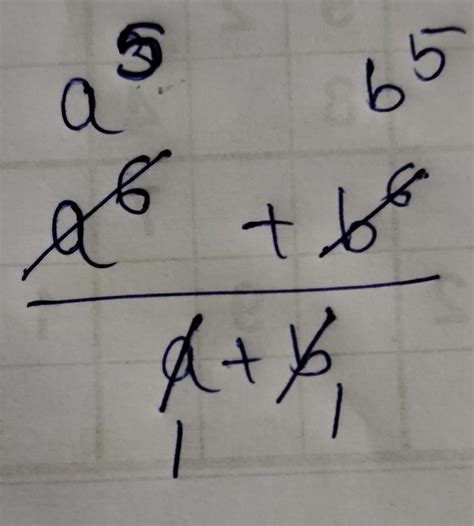 a⁵ b⁵
a⁶ + b⁶
a + b
1 1